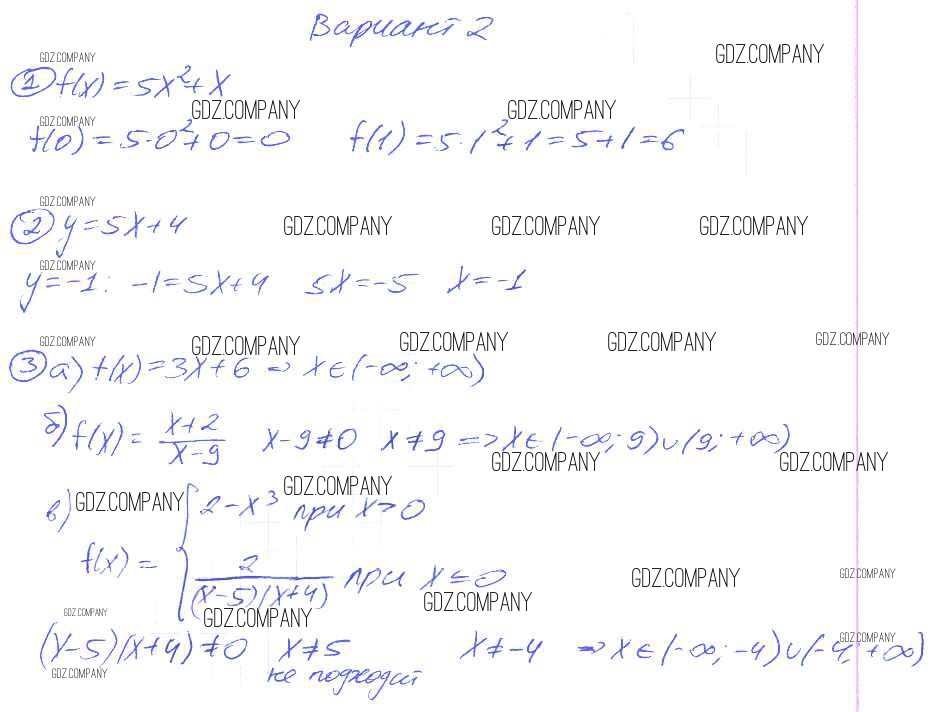 Вариант 2
GDZ.COMPANY GDZ.COMPANY
① f(x) = 5x² + x
GDZ.COMPANY GDZ.COMPANY GDZ.COMPANY
f(0) = 5·0² + 0 = 0 f(1) = 5·1² + 1 = 5 + 1 = 6
GDZ.COMPANY
② y = 5x + 4 GDZ.COMPANY GDZ.COMPANY GDZ.COMPANY
GDZ.COMPANY
y = -1: -1 = 5x + 4 5x = -5 x = -1
GDZ.COMPANY GDZ.COMPANY GDZ.COMPANY GDZ.COMPANY GDZ.COMPANY
③ а) f(x) = 3x + 6 => x ∈ (-∞; +∞)
б) f(x) = (x+2)/(x-9) x - 9 ≠ 0 x ≠ 9 => x ∈ (-∞; 9) ∪ (9; +∞)
GDZ.COMPANY GDZ.COMPANY
в) GDZ.COMPANY GDZ.COMPANY
2 - x³ при x > 0
f(x) = {
2/((x-5)(x+4)) при x ≤ 0
GDZ.COMPANY GDZ.COMPANY
GDZ.COMPANY
GDZ.COMPANY GDZ.COMPANY GDZ.COMPANY
(x-5)(x+4) ≠ 0 x ≠ 5 x ≠ -4 => x ∈ (-∞; -4) ∪ (-4; +∞)
GDZ.COMPANY не подходит